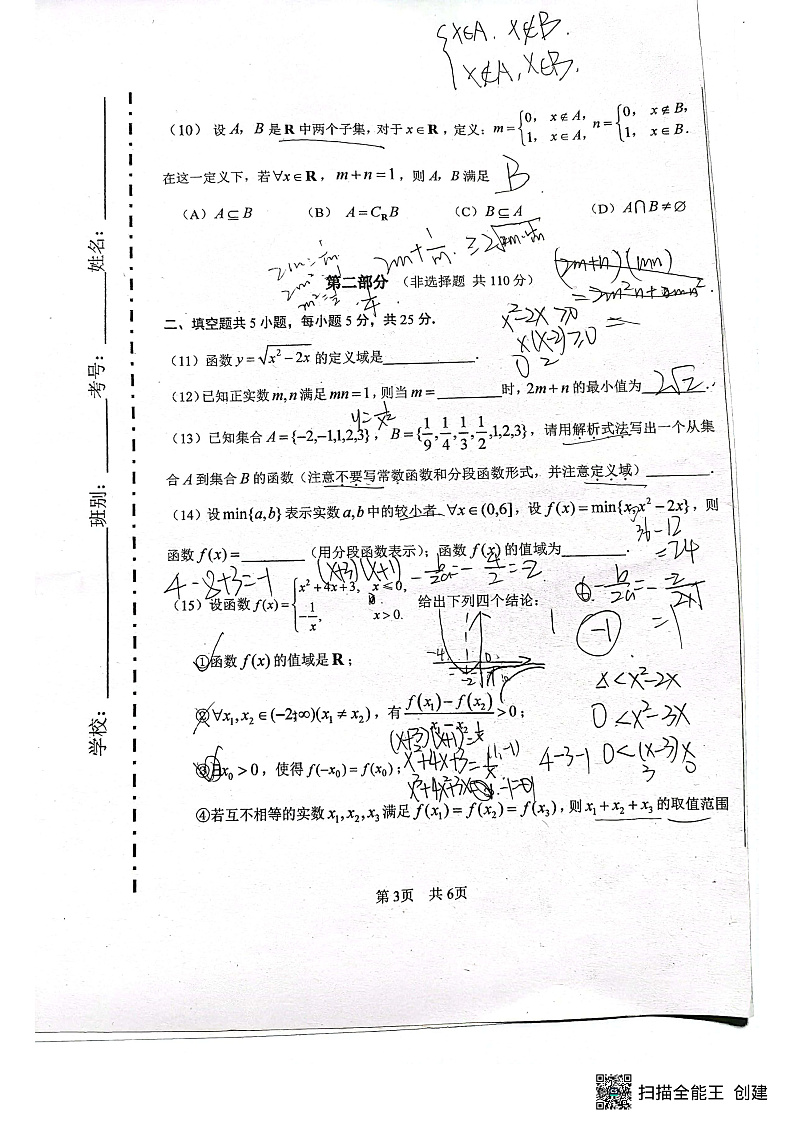 {x∈A, x∉B.
x∉A, x∈B.
(10) 设 A, B 是 R 中两个子集, 对于 x∈R, 定义: m={0, x∉A, 1, x∈A, n={0, x∉B, 1, x∈B.
在这一定义下, 若 ∀x∈R, m+n=1, 则 A, B 满足 B
(A) A⊆B (B) A=C_R B (C) B⊆A (D) A∩B≠∅
第二部分 (非选择题 共 110 分)
二、填空题共 5 小题, 每小题 5 分, 共 25 分.
x²-2x≥0
x(x-2)≥0
0 2
(11) 函数 y=√(x²-2x) 的定义域是________.
(12) 已知正实数 m,n 满足 mn=1, 则当 m=________时, 2m+n 的最小值为 2√2.
(13) 已知集合 A={-2,-1,1,2,3}, B={1/9, 1/4, 1/3, 1/2, 1,2,3}, 请用解析式法写出一个从集
合 A 到集合 B 的函数 (注意不要写常数函数和分段函数形式, 并注意定义域) ________.
(14) 设 min{a,b} 表示实数 a,b 中的较小者. ∀x∈(0,6], 设 f(x)=min{x, x²-2x}, 则
36-12
=24
函数 f(x)=________ (用分段函数表示); 函数 f(x) 的值域为________.
4-8+3=-1 (x+3)(x+1) -b/2a=-4/2=-2
(15) 设函数 f(x)={x²+4x+3, x≤0, -1/x, x>0. 给出下列四个结论:
-1
①函数 f(x) 的值域是 R;
x<x²-2x
②∀x₁,x₂∈(-2,+∞)(x₁≠x₂), 有 (f(x₁)-f(x₂))/(x₁-x₂)>0;
0<x²-3x
③∃x₀>0, 使得 f(-x₀)=f(x₀);
4-3-1 0<(x-3)x
④若互不相等的实数 x₁,x₂,x₃ 满足 f(x₁)=f(x₂)=f(x₃), 则 x₁+x₂+x₃ 的取值范围
第 3页 共 6页
学校: 班别: 考号: 姓名:
扫描全能王 创建